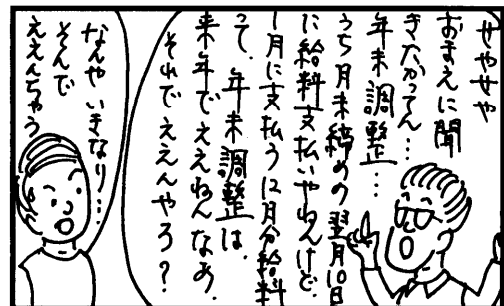 せやせや
おまえに聞
きたかってん…
年末調整…
うち月末締めの翌月10日
に給料支払いやねんけど、
1月に支払う12月分給料
って、年末調整は、
来年でええねんなぁ。
それでええんやろ？
なんや いきなり…
そんで
ええんちゃう